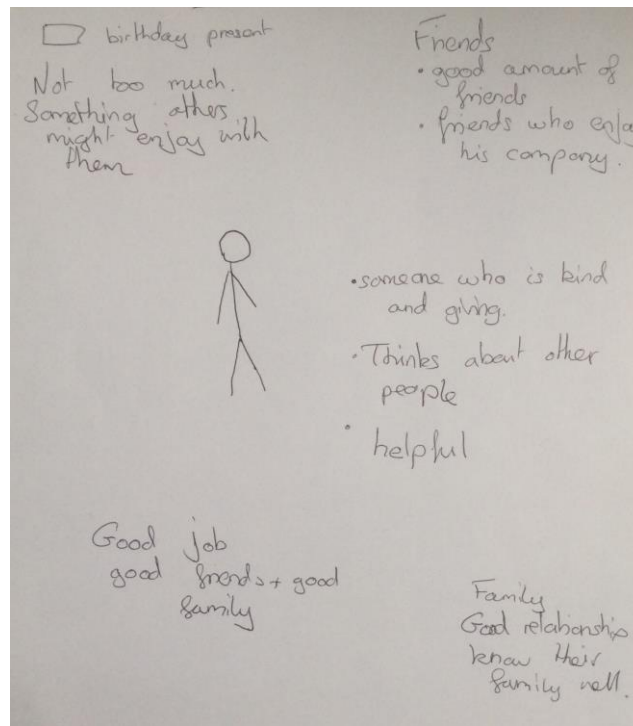 birthday present
Not too much.
Something others
might enjoy with
them
Friends
• good amount of
friends
• friends who enjoy
his company.
• someone who is kind
and giving.
• Thinks about other
people
• helpful
Good job
good friends + good
family
Family
Good relationship
know their
family well.